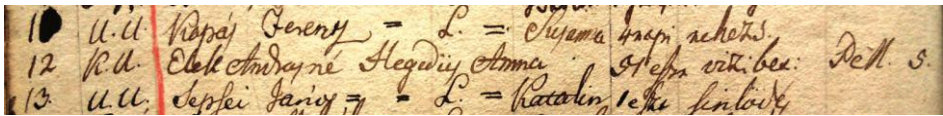 11 U.U. Kopáj Ferentz = L. = Susanna 4 napi nehézs.
12 R.U. Elek Andrásné Hegedüs Anna 51 esz. vizibet: Pell. S.
13. U.U. Sepsei János = - L. = Katalin 1 esz. sinlödés